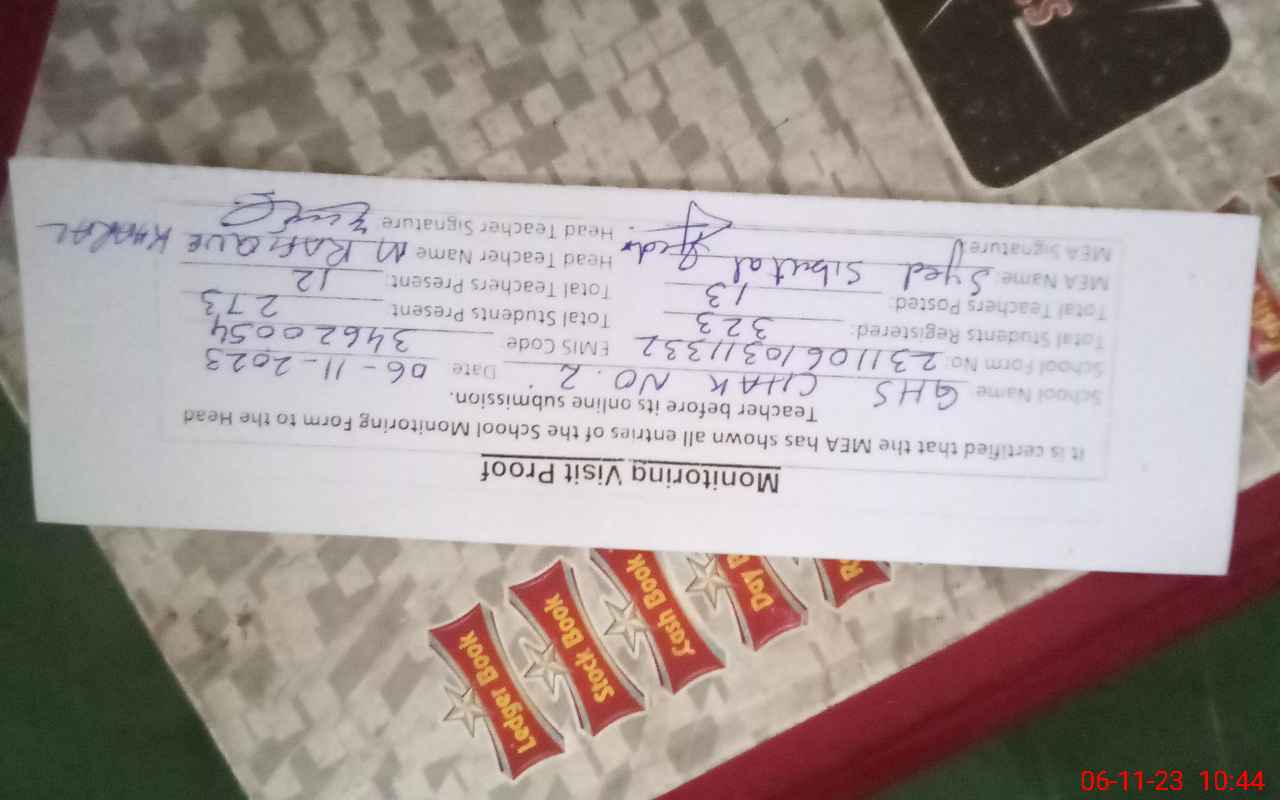 Monitoring Visit Proof
It is certified that the MEA has shown all entries of the School Monitoring Form to the Head
Teacher before its online submission.
School Name: GHS CHAK NO. 2 Date: 06-11-2023
School Form No: 23110610311332 EMIS Code: 34620054
Total Students Registered: 323 Total Students Present: 273
Total Teachers Posted: 13 Total Teachers Present: 12
MEA Name: Syed Head Teacher Name M RAFIQUE KHARAL
MEA Signature: Head Teacher Signature:
Ledger Book
Stock Book
Cash Book
Day B
R
06-11-23 10:44